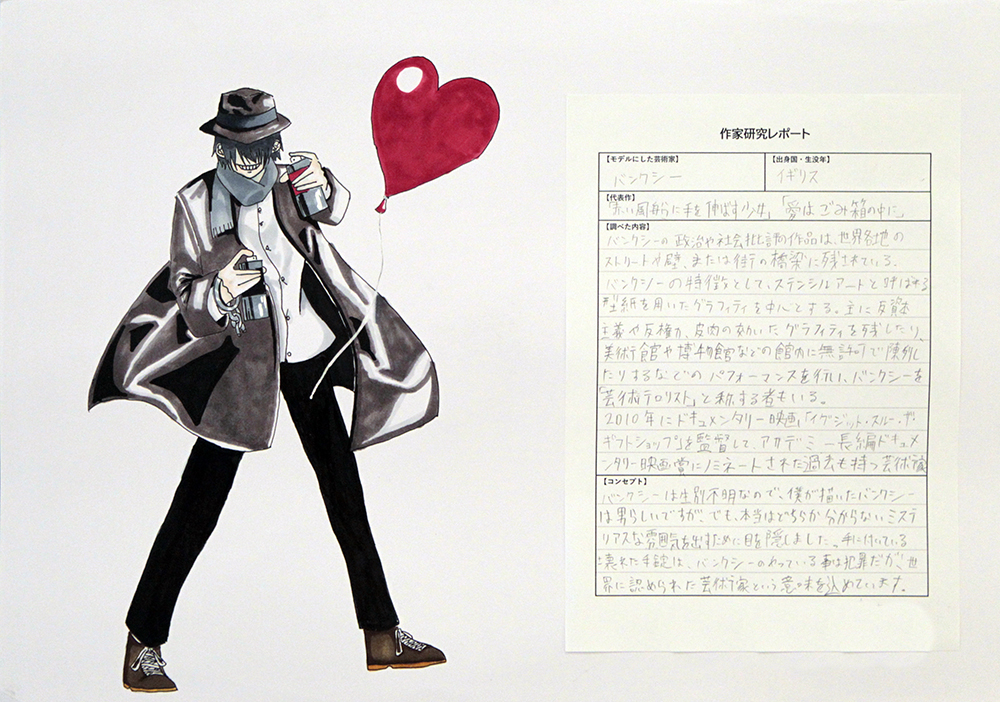 作家研究レポート
【モデルにした芸術家】
バンクシー
【出身国・生没年】
イギリス
【代表作】
「赤い風船に手を伸ばす少女」「愛はごみ箱の中に」
【調べた内容】
バンクシーの政治や社会批評的作品は、世界各地の
ストリートや壁、または街の橋梁に残されている。
バンクシーの特徴として、ステンシルアートと呼ばれる
型紙を用いたグラフィティを中心とする。主に反資本
主義や反権力、皮肉の効いたグラフィティを残したり、
美術館や博物館などの館内に無許可で陳列し
たりするなどのパフォーマンスを行い、バンクシーを
「芸術テロリスト」と称する者もいる。
2010年にドキュメンタリー映画「イグジット・スルー・ザ・
ギフトショップ」を監督して、アカデミー長編ドキュメ
ンタリー映画賞にノミネートされた過去も持つ芸術家
【コンセプト】
バンクシーは性別不明なので、僕が描いたバンクシー
は男らしいですが、でも、本当はどちらか分からないミステ
リアスな雰囲気を出すために目を隠しました。手に付いている
壊れた手錠は、バンクシーのやっている事は犯罪だが、世
界に認められた芸術家という意味を込めています。